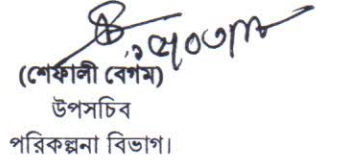 (শেফালী বেগম)
উপসচিব
পরিকল্পনা বিভাগ।